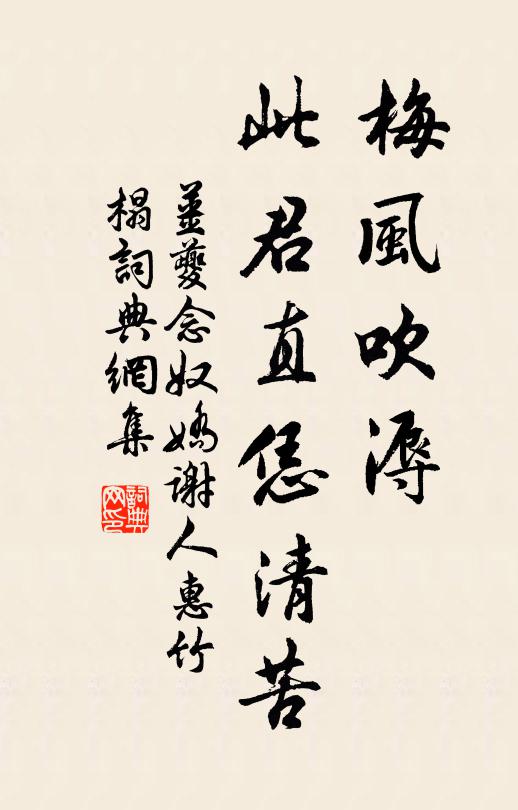 梅風吹溽
此君直恁清苦
薑夔念奴嬌謝人惠竹
榻詞典網集
詞典
网印